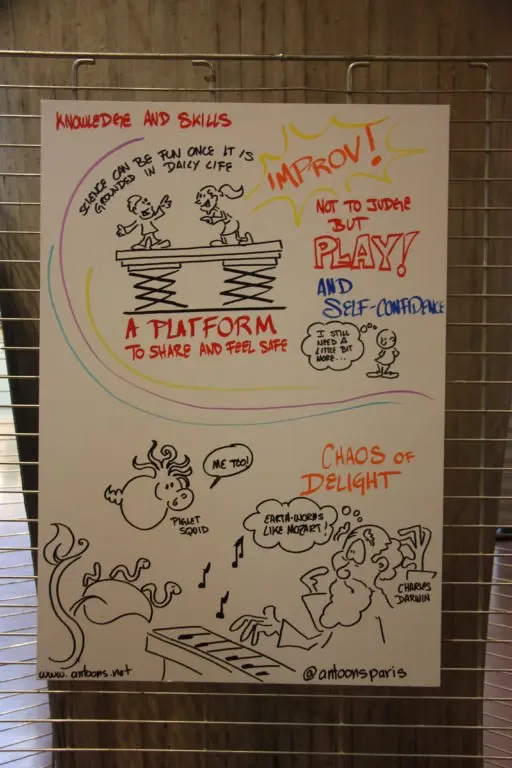 KNOWLEDGE AND SKILLS
SCIENCE CAN BE FUN ONCE IT IS
GROUNDED IN DAILY LIFE
IMPROV!
NOT TO JUDGE
BUT
PLAY!
AND
SELF-CONFIDENCE
A PLATFORM
TO SHARE AND FEEL SAFE
I STILL
NEED A
LITTLE BIT
MORE...
ME TOO!
PIGLET
SQUID
CHAOS OF
DELIGHT
EARTH-WORMS
LIKE MOZART!
CHARLES
DARWIN
www.antoons.net
@antoonsparis